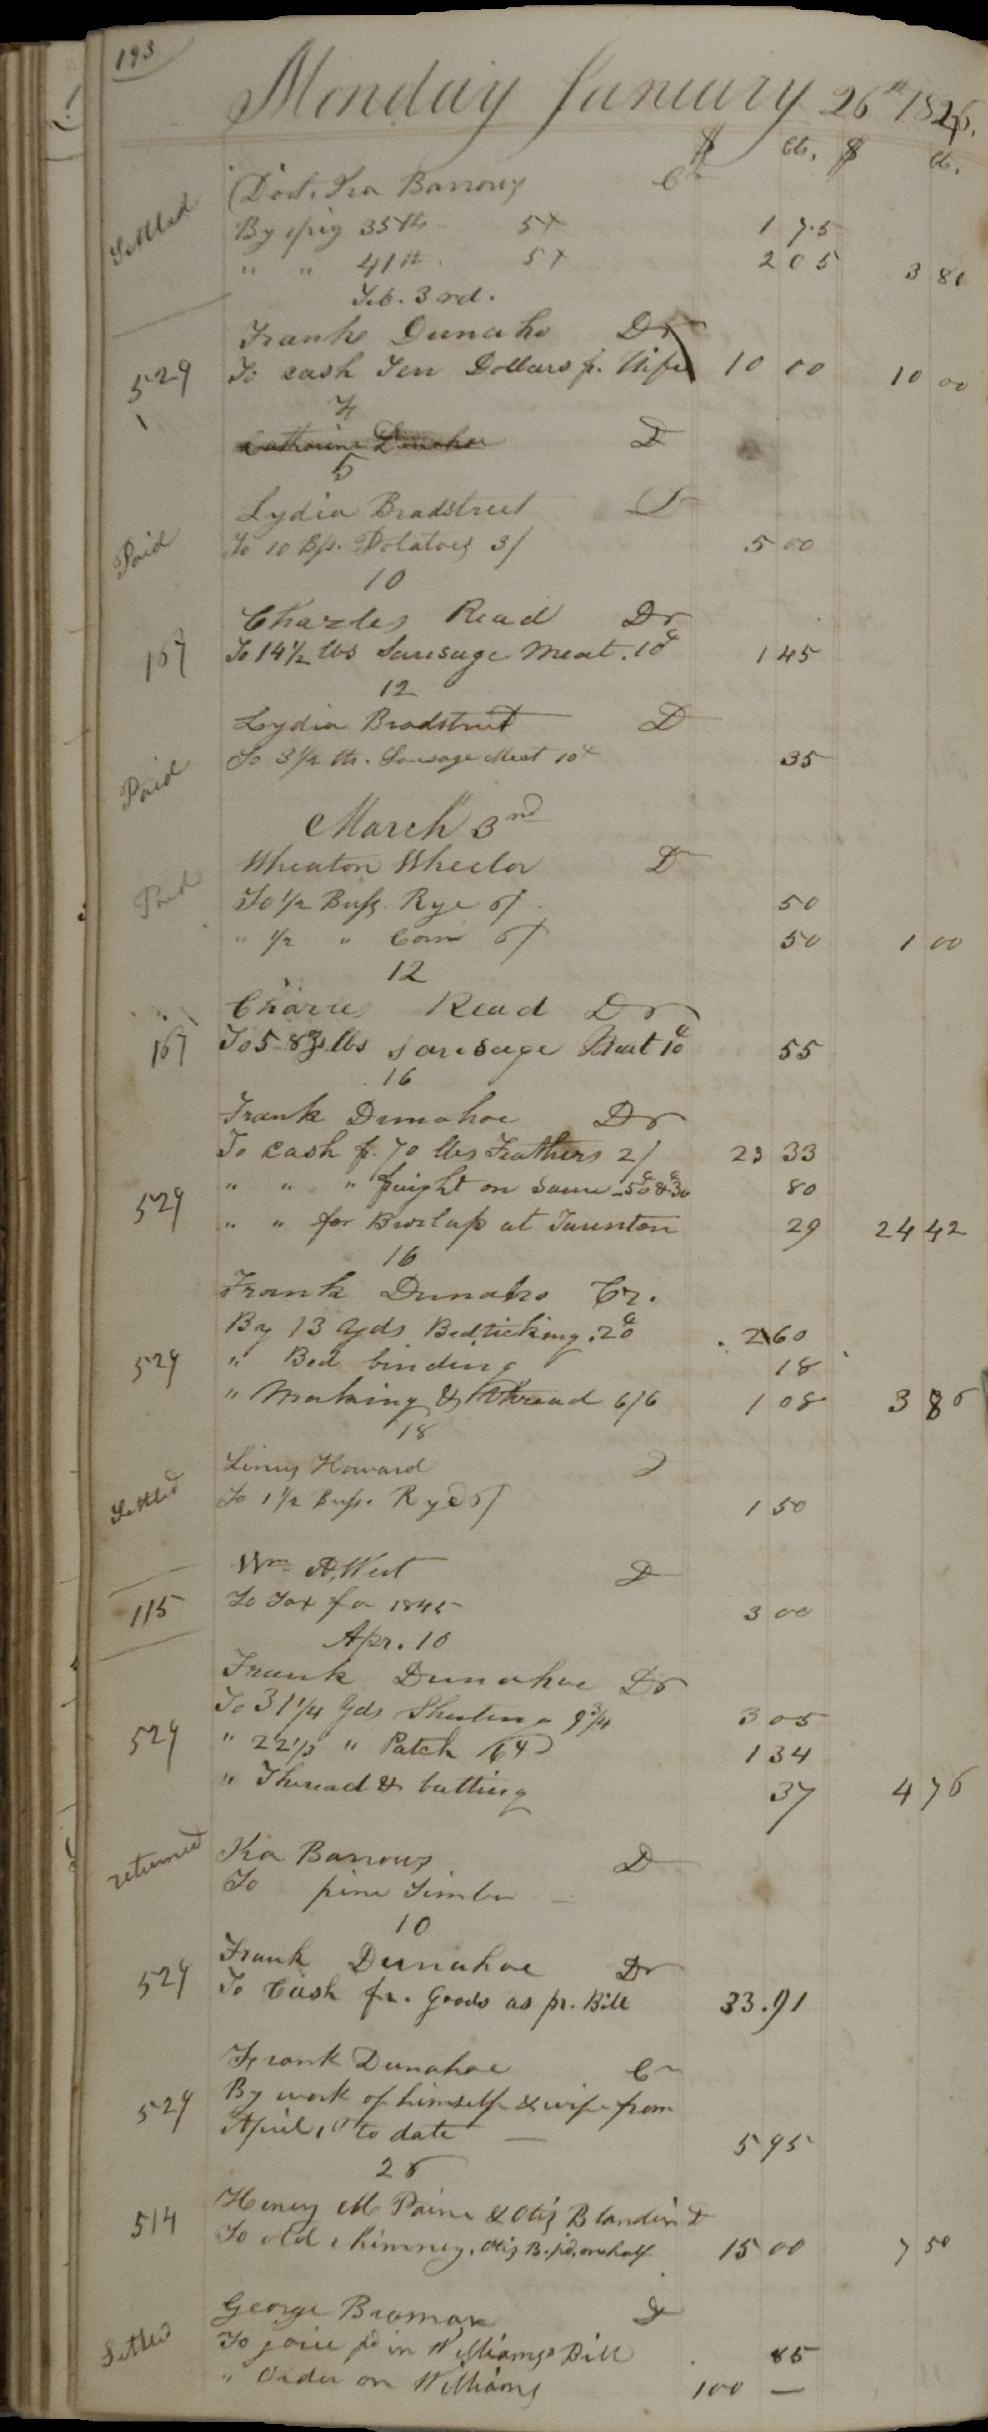 193
Monday January 26th 1846.
$ cts. $ cts.
Doct. Ira Barrows Cr
Settled By pig 35 lb 5¢ 1 75
" " 41 lb. 5¢ 2 05 3 80
Feb. 3rd.
Frank Dunaho Dr
529 To cash Ten Dollars p. Wife 10 00 10 00
4
Catharine Donahoe D
5
Lydia Bradstreet Dr
Paid To 10 Bus. Potatoes 3/ 5 00
10
Charles Read Dr
167 To 14 1/2 lbs Sausage Meat. 10c 1 45
12
Lydia Bradstreet D
Paid To 3 1/2 lb. Sausage Meat 10¢ 35
March 3rd
Wheaton Wheelor D
Paid To 1/2 Bus. Rye 6/ 50
" 1/2 " Corn 6/ 50 1 00
12
Charles Read Dr
167 To 5 lbs sausage Meat 10c 55
16
Frank Dunahoe Dr
To cash f. 70 lbs Feathers 2/ 23 33
529 " " " freight on same 50c & 30c 80
" " for Burlap at Taunton 29 24 42
16
Frank Dunaho Cr.
By 13 Yds Bedticking. 20c 2 60
529 " Bed binding 18
" Making & Thread 6/6 1 08 3 86
18
Linus Howard D
Settled To 1 1/2 Bus. Rye 6/ 1 50
Wm. A. West D
115 To Tax for 1845 3 00
Apr. 10
Frank Dunahoe Dr
To 31 1/4 Yds Sheeting 9 3/4 3 05
529 " 22 1/3 " Patch 1 34
" Thread & batting 37 4 76
returned Ira Barrows D
To pine Timber
10
Frank Dunahoe Dr
529 To Cash fr. Goods as pr. Bill 33.91
Frank Dunahoe Cr
529 By work of himself & wife from
April 1st to date — 5 95
26
Henry M Paine & Otis Blandin D
514 To old chimney. Otis B. pd. one half 15 00 7 50
George Broman D
Settled To joice pd in Williams Bill 85
" Order on Williams 100 —